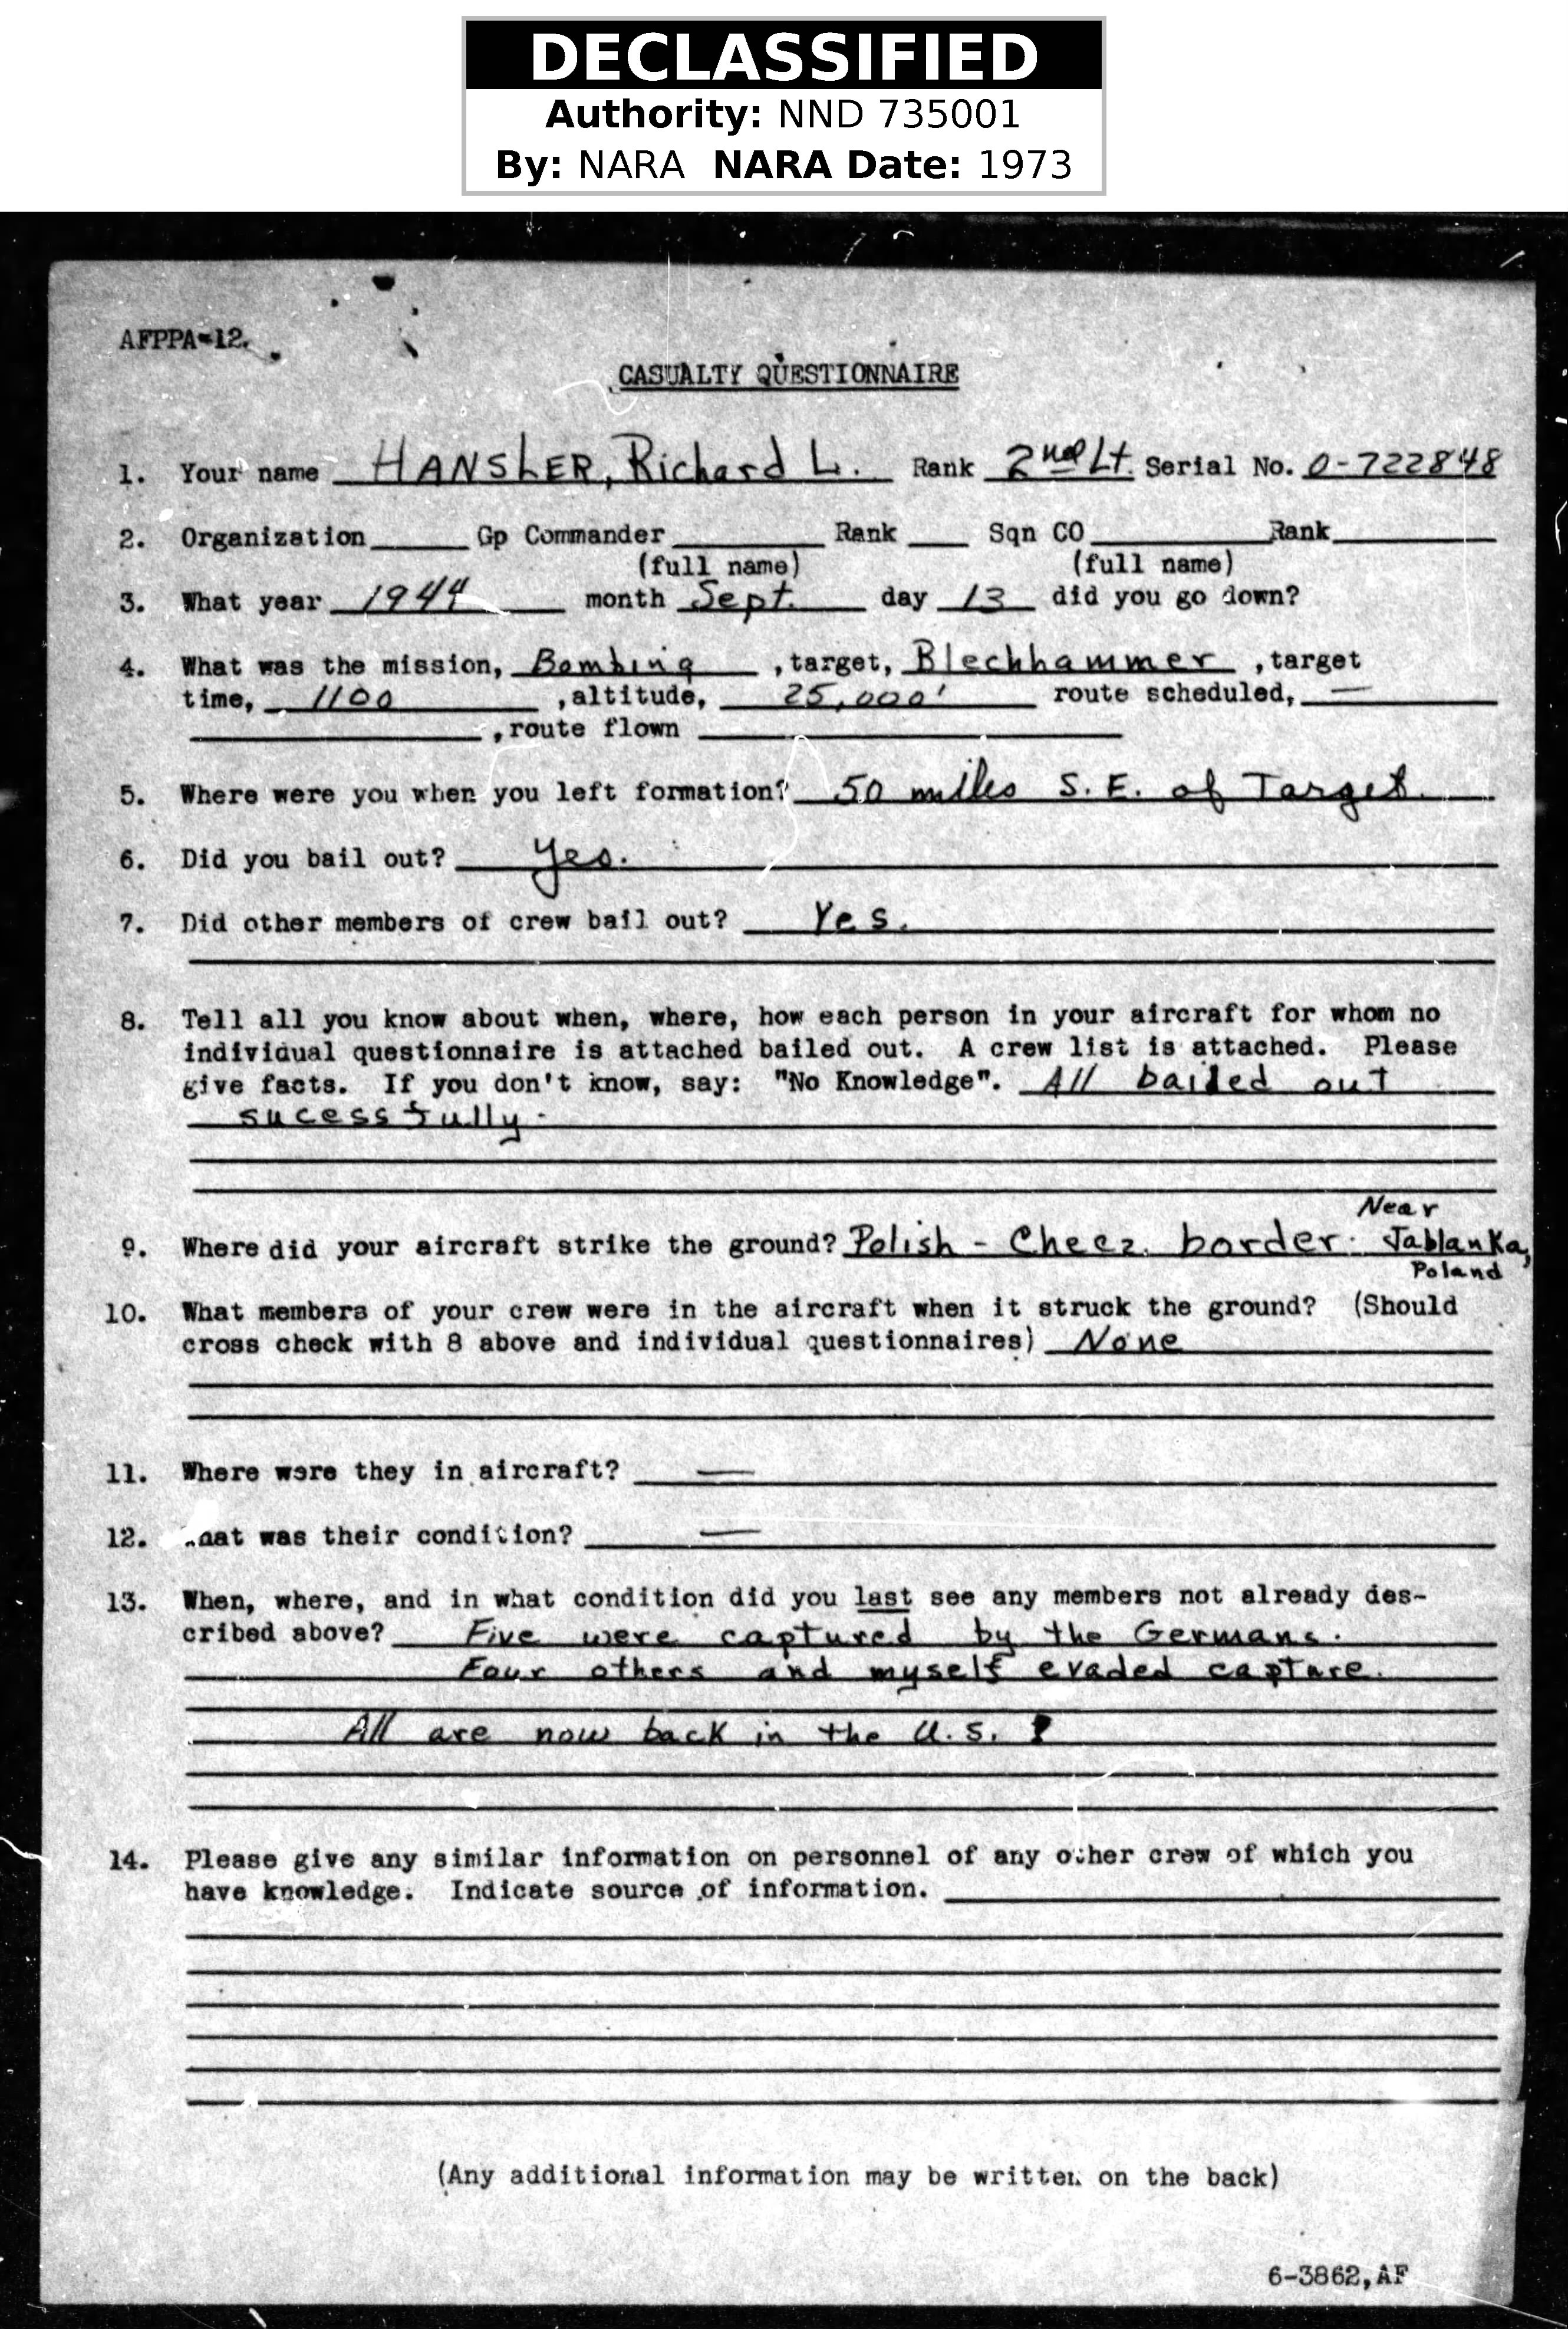 DECLASSIFIED
Authority: NND 735001
By: NARA NARA Date: 1973
AFPPA-12.
CASUALTY QUESTIONNAIRE
1. Your name HANSLER, Richard L. Rank 2nd Lt. Serial No. O-722848
2. Organization Gp Commander Rank Sqn CO Rank
(full name) (full name)
3. What year 1944 month Sept. day 13 did you go down?
4. What was the mission, Bombing , target, Blechhammer , target
time, 1100 , altitude, 25,000' route scheduled, —
, route flown
5. Where were you when you left formation? 50 miles S.E. of Target.
6. Did you bail out? yes.
7. Did other members of crew bail out? Yes.
8. Tell all you know about when, where, how each person in your aircraft for whom no
individual questionnaire is attached bailed out. A crew list is attached. Please
give facts. If you don't know, say: "No Knowledge". All bailed out
sucessfully.
Near
9. Where did your aircraft strike the ground? Polish - Checz. border. Jablanka,
Poland
10. What members of your crew were in the aircraft when it struck the ground? (Should
cross check with 8 above and individual questionnaires) None
11. Where were they in aircraft? —
12. What was their condition? —
13. When, where, and in what condition did you last see any members not already des-
cribed above? Five were captured by the Germans.
Four others and myself evaded capture.
All are now back in the U.S.
14. Please give any similar information on personnel of any other crew of which you
have knowledge. Indicate source of information.
(Any additional information may be written on the back)
6-3862,AF